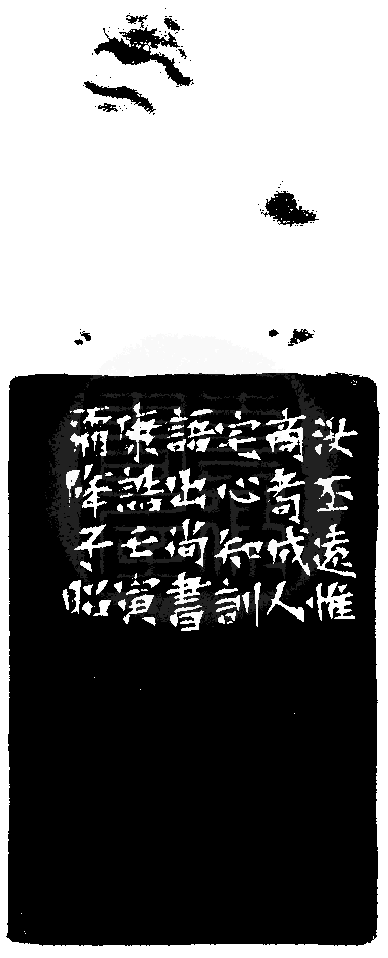 汝丕遠惟
商耇成人
宅心知訓
語出尚書
康誥壬寅
降子昭